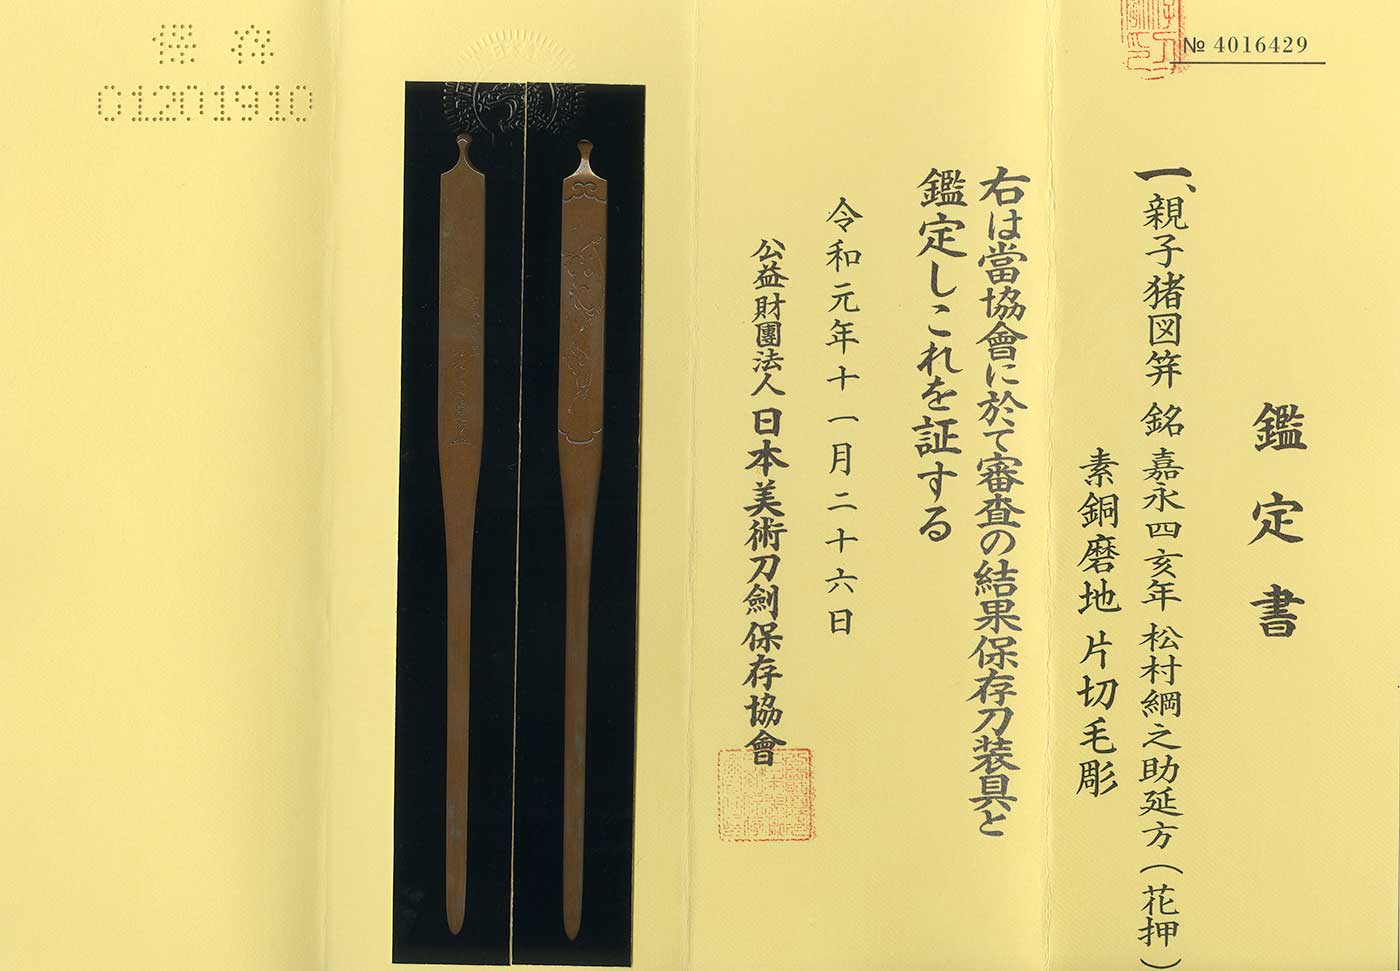 № 4016429
鑑定書
一、親子猪図笄 銘 嘉永四亥年 松村綱之助延方(花押)
素銅磨地 片切毛彫
右は當協會に於て審査の結果保存刀装具と
鑑定しこれを証する
令和元年十一月二十六日
公益財團法人 日本美術刀劍保存協會
保存
01201910